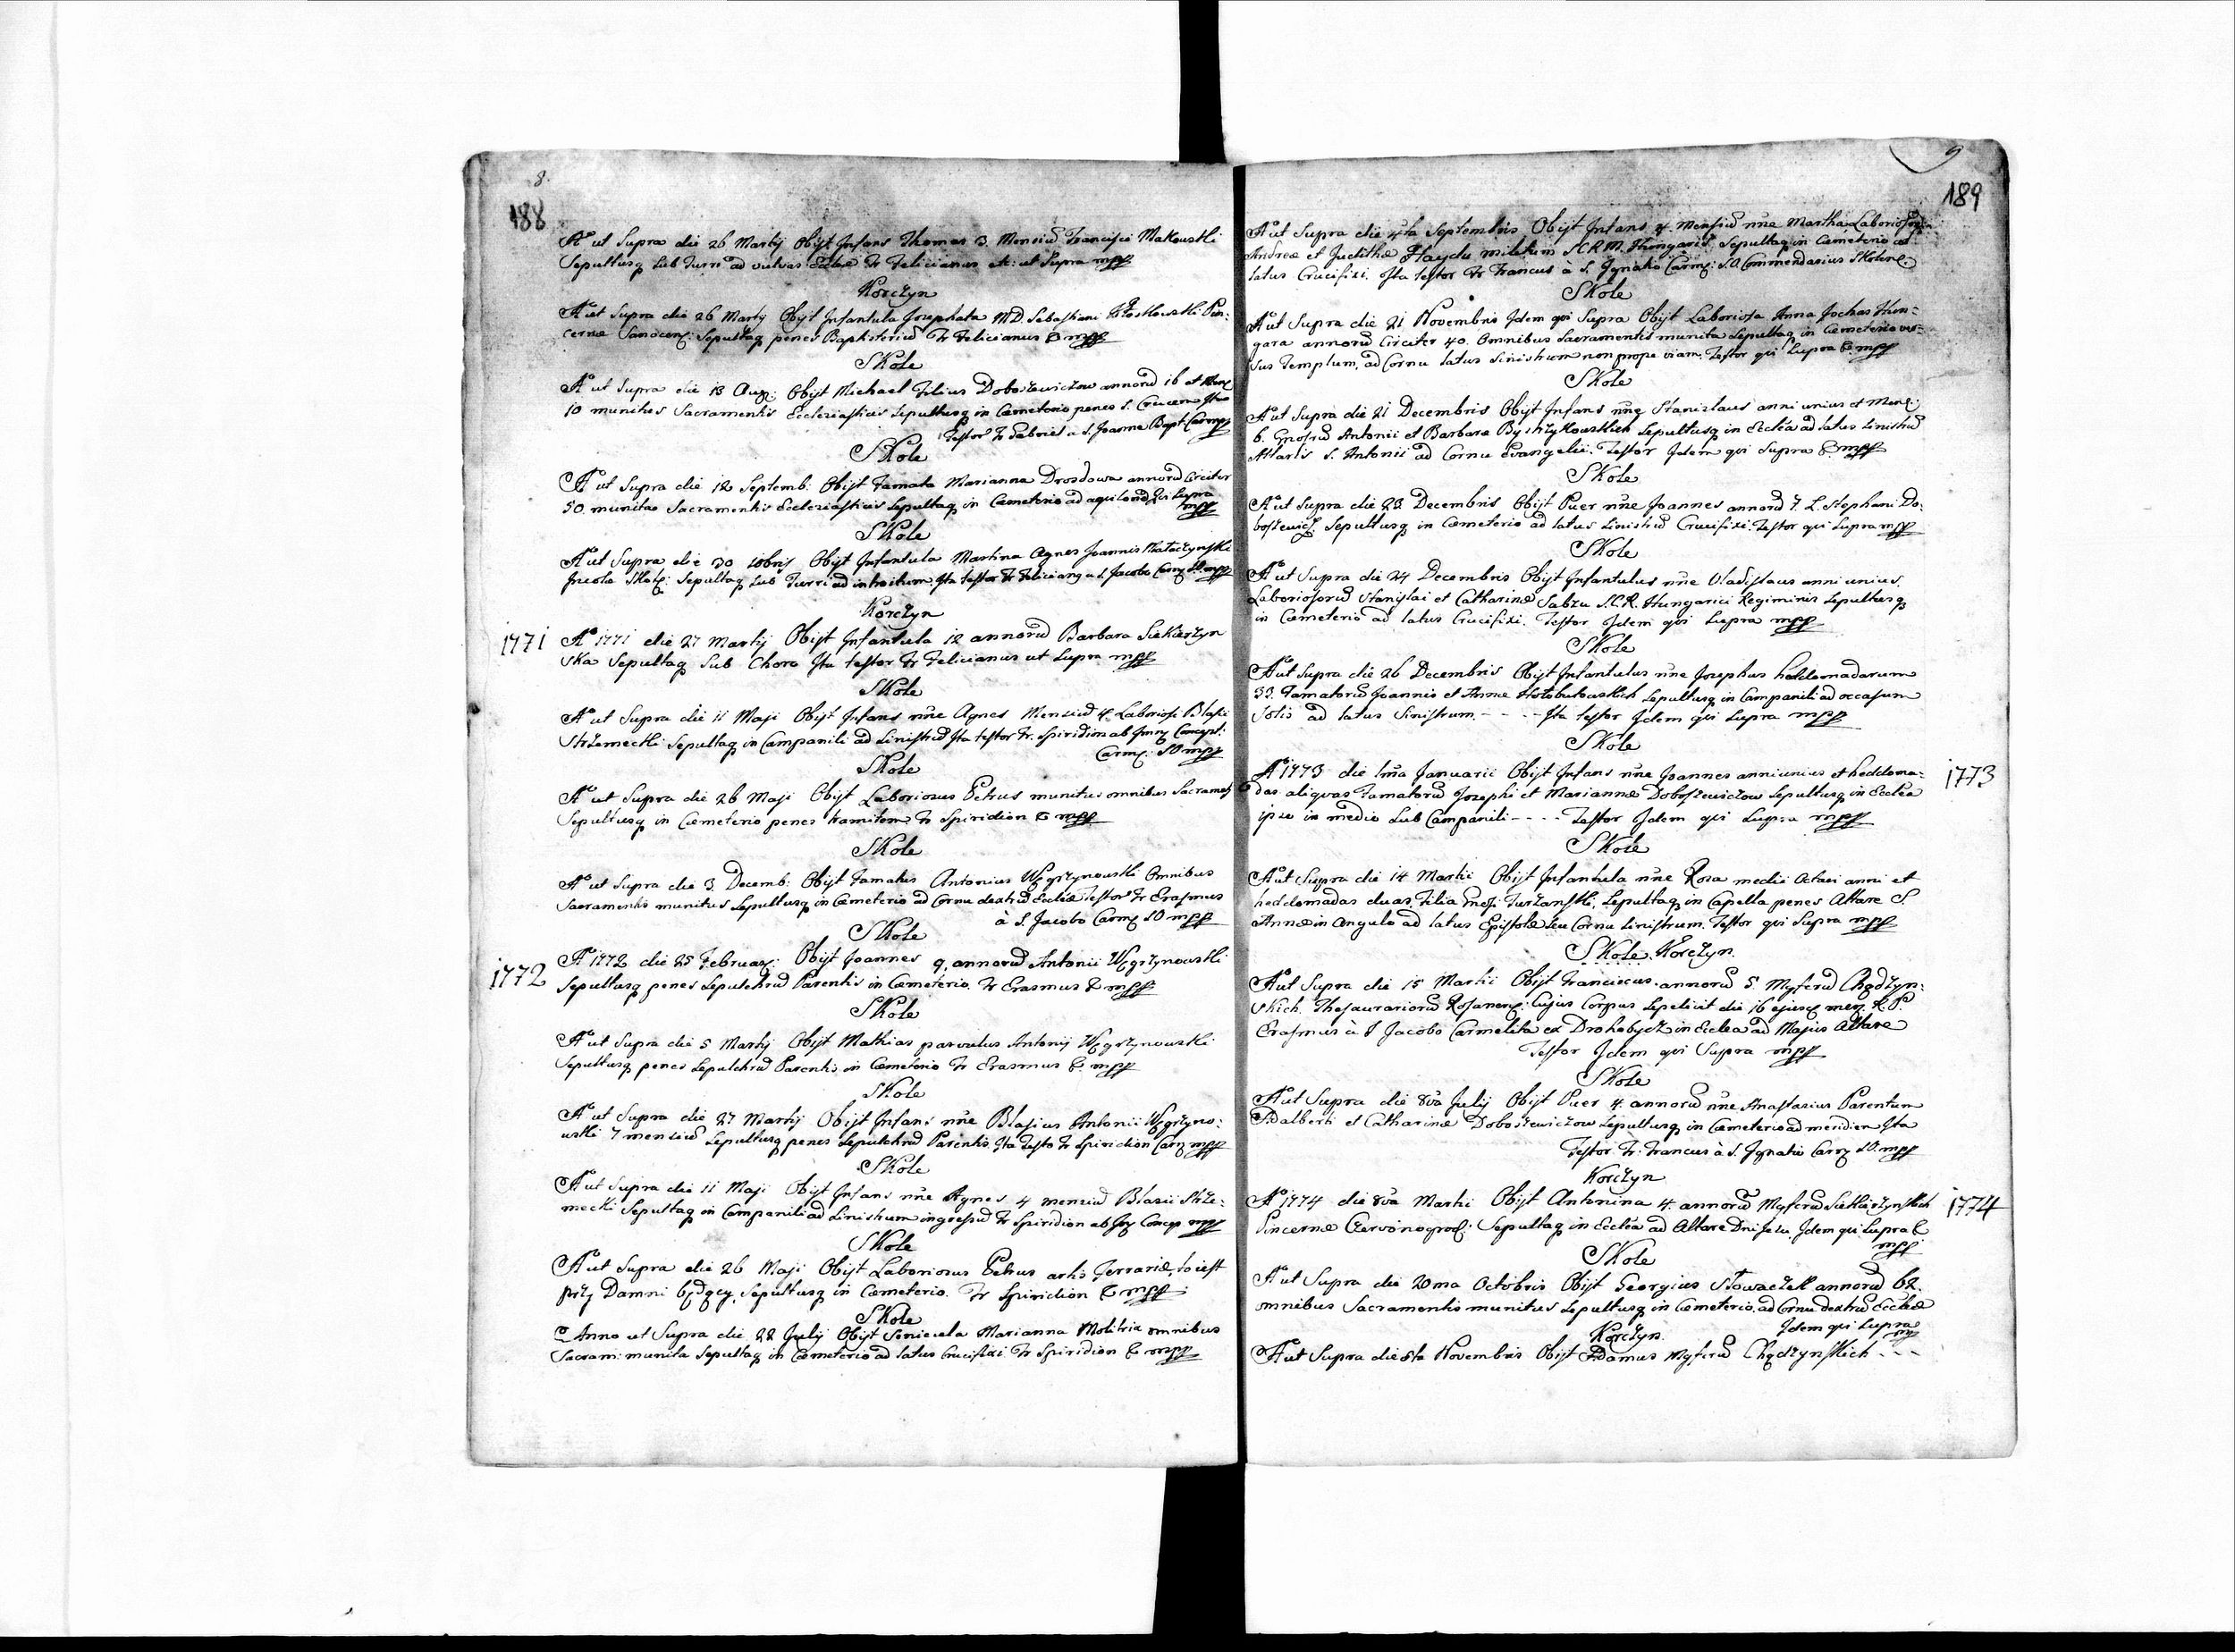 8.
188
Aº ut Supra die 26 Martij Obijt Infans Thomas 3. Mensiũ Francisci Makowski
Sepultusq sub Turri ad vulvas Ecclæ Fr Felicianus etc: ut Supra mpp
Korczyn
Aº ut Supra die 26 Martij Obijt Infantula Josephata MD. Sebastiani Pin:
cernæ Sanocens: Sepultaq penes Baptisteriũ Fr Felicianus & mpp
Skole
Aº ut Supra die 13 Aug: Obijt Michael Filius Dobosiewiczow annorũ 16 et Mens
10 munitus Sacramentis Ecclesiasticis Sepultusq in Cæmeterio penes S. Crucem Ita
Testor Fr Gabriel a S. Joanne Bapt: Carm mpp
Skole
Aº ut Supra die 12 Septemb: Obijt Famata Marianna Drozdowa annorũ Circiter
50. munitas Sacramentis Ecclesiasticis Sepultaq in Cæmeterio ad aquilonẽ Qui Supra
mpp
Skole
Aº ut Supra die 30 Obijt Infantula Martina Agnes Joannis Mataczynski
Incola Skols: Sepultaq Sub Turri ad introitum. Ita testor Fr Felicianq a S. Jacobo Carm SO mpp
Korczyn
1771 Aº 1771 die 27 Martij Obijt Infantula 12 annorũ Barbara Siekierzyn
ska Sepultaq Sub Choro Ita testor Fr Felicianus ut Supra mpp
Skole
Aº ut Supra die 11 Maji Obijt Infans nñe Agnes Mensiũ 4. Laboriosi Blasii
Strzemecki Sepultaq in Campanili ad Sinistrũ Ita testor Fr. Spiridion ab Imm Concept:
Carm: SO mpp
Skole
Aº ut Supra die 26 Maji Obijt Laboriosus Petrus munitus omnibus Sacramẽ
Sepultusq in Cæmeterio penes tramitem Fr Spiridion & mpp
Skole
Aº ut Supra die 3. Decemb: Obijt Famatus Antonius Węgrzynowski Omnibus
Sacramentis munitus Sepultusq in Cæmeterio ad Cornu dextrũ Ecclæ Testor Fr Erasmus
à S. Jacobo Carm SO mpp
Skole
1772 Aº 1772 die 25 Februar: Obijt Joannes 9. annorũ Antonii Węgrzynowski
Sepultusq penes Sepulchrũ Parentis in Cæmeterio. Fr Erasmus & mpp
Skole
Aº ut Supra die 5 Martij Obijt Mathias parvulus Antonij Węgrzynowski
Sepultusq penes Sepulchrũ Parentis in Cæmeterio Fr Erasmus & mpp
Skole
Aº ut Supra die 27 Martij Obijt Infans nñe Blasius Antonii Węgrzyno:
wski 7 mensiũ Sepultusq penes Sepulchrũ Parentis. Ita Testo Fr Spiridion Carm mpp
Skole
Aº ut Supra die 11 Maji Obijt Infans nñe Agnes 4 mensiũ Blasii Strze:
mecki Sepultaq in Campanili ad Sinistrum ingressũ Fr Spiridion ab Im Concep mpp
Skole
Aº ut Supra die 26 Maji Obijt Laboriosus Petrus artis Ferrariæ, to iest
przy Damni będący, Sepultusq in Cæmeterio. Fr Spiridion & mpp
Skole
Anno ut Supra die 22 Julij Obijt Senicula Marianna Molitrix omnibus
Sacram: munita Sepultaq in Cæmeterio ad latus Crucifixi Fr Spiridion & mpp
9
189
Aº ut Supra die 4ta Septembris Obijt Infans 4. Mensiũ nñe Martha Laboriosorũ
Andreæ et Judithæ Haydu militum S.C.R.M. Hungariæ. Sepultaq in Cæmeterio ad
latus Crucifixi. Ita testor Fr Francus à S. Ignatio Carm: S.O Commendarius Skolens:
Skole
Aº ut Supra die 21 Novembris Idem qui Supra Obijt Laboriosa Anna Jochas Hun=
gara annorũ Circiter 40. Omnibus Sacramentis munita Sepultaq in Cæmeterio ver=
sus Templum, ad Cornu latus Sinistrum non prope viam. Testor qui Supra & mpp
Skole
Aº ut Supra die 21 Decembris Obijt Infans nñe Stanislaus anni unius et Mens:
6. Gnosorũ Antonii et Barbaræ Bystrzykowskich Sepultusq in Ecclẽa ad latus Sinistrũ
Altaris S. Antonii ad Cornu Evangelii. Testor Idem qui Supra & mpp
Skole
Aº ut Supra die 23 Decembris Obijt Puer nñe Joannes annorũ 7. L. Stephani Do:
boszewicz Sepultusq in Cæmeterio ad latus Sinistrũ Crucifixi. Testor qui Supra mpp
Skole
Aº ut Supra die 24 Decembris Obijt Infantulus nñe Vladislaus anni unius.
Laboriosorũ Stanislai et Catharinæ Sabzu S.C.R. Hungarici Regiminis Sepultusq
in Cæmeterio ad latus Crucifixi. Testor Idem qui Supra mpp
Skole
Aº ut Supra die 26 Decembris Obijt Infantulus nñe Josephus hebdomadarum
33. Famatorũ Joannis et Annæ Hołobutowskich Sepultusq in Campanili ad occasum
Solis ad latus Sinistrum. - - - - Ita testor Idem qui Supra mpp
Skole
Aº 1773 die 1ma Januarii Obijt Infans nñe Joannes anni unius et hebdoma= 1773
das aliquas Famatorũ Josephi et Mariannæ Doboszewiczow Sepultusq in Ecclẽa
ipso in medio Sub Campanili - - - - Testor Idem qui Supra mpp
Skole
Aº ut Supra die 14 Martii Obijt Infantula nñe Rosa medii Octavi anni et
hebdomadas duas, Filia Gnosi Turzanski, Sepultaq in Capella penes Altare S.
Annæ in angulo ad latus Epistolæ seu Cornu Sinistrum. Testor qui Supra mpp
Skole. Korczyn.
Aº ut Supra die 15 Martii Obijt Franciscus annorũ 5. Mgfcorũ Chądzyn:
skich. Thesaurariorũ Rosanens: Cujus Corpus Sepelivit die 16 ejusq mens. R.P.
Erasmus à S Jacobo Carmelita ex Drohobycz in Ecclea ad Majus Altare
Testor Idem qui Supra mpp
Skole
Aº ut Supra die 8va Julij Obijt Puer 4. annorũ nñe Anastasius Parentum
Adalberti et Catharinæ Doboszewiczow Sepultusq in Cæmeterio ad meridiem Ita
Testor Fr. Francus à S. Ignatio Carm SO. mpp
Korczyn
Aº 1774 die 8va Martii Obijt Antonina 4. annorũ Mgfcorũ Siekierzynskich 1774
Pincernæ Czerwonogrod: Sepultaq in Ecclẽa ad Altare Dni Jesu. Idem qui Supra &
mpp
Skole
Aº ut Supra die 20ma Octobris Obijt Georgius Słowaczek annorũ 62.
omnibus Sacramentis munitus Sepultusq in Cæmeterio, ad Cornu dextrũ Ecclæ
Idem qui Supra
mp
Korczyn.
Aº ut Supra die 6ta Novembris Obijt Adamus Mgfcorũ Chądzynskich - - -